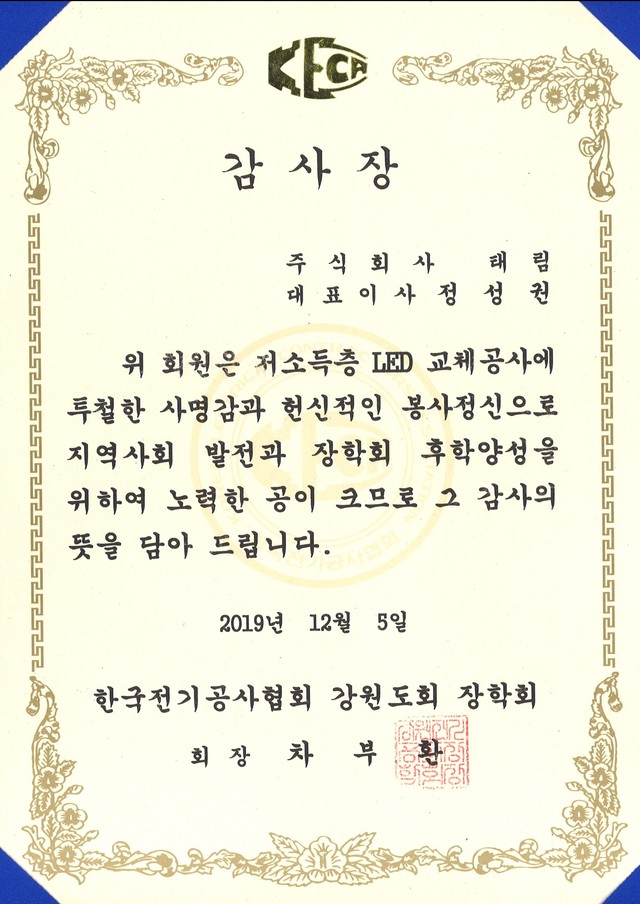 KECA
감사장
주식회사 태림
대표이사 정성권
위 회원은 저소득층 LED 교체공사에
투철한 사명감과 헌신적인 봉사정신으로
지역사회 발전과 장학회 후학양성을
위하여 노력한 공이 크므로 그 감사의
뜻을 담아 드립니다.
2019년 12월 5일
한국전기공사협회 강원도회 장학회
회장 차부환